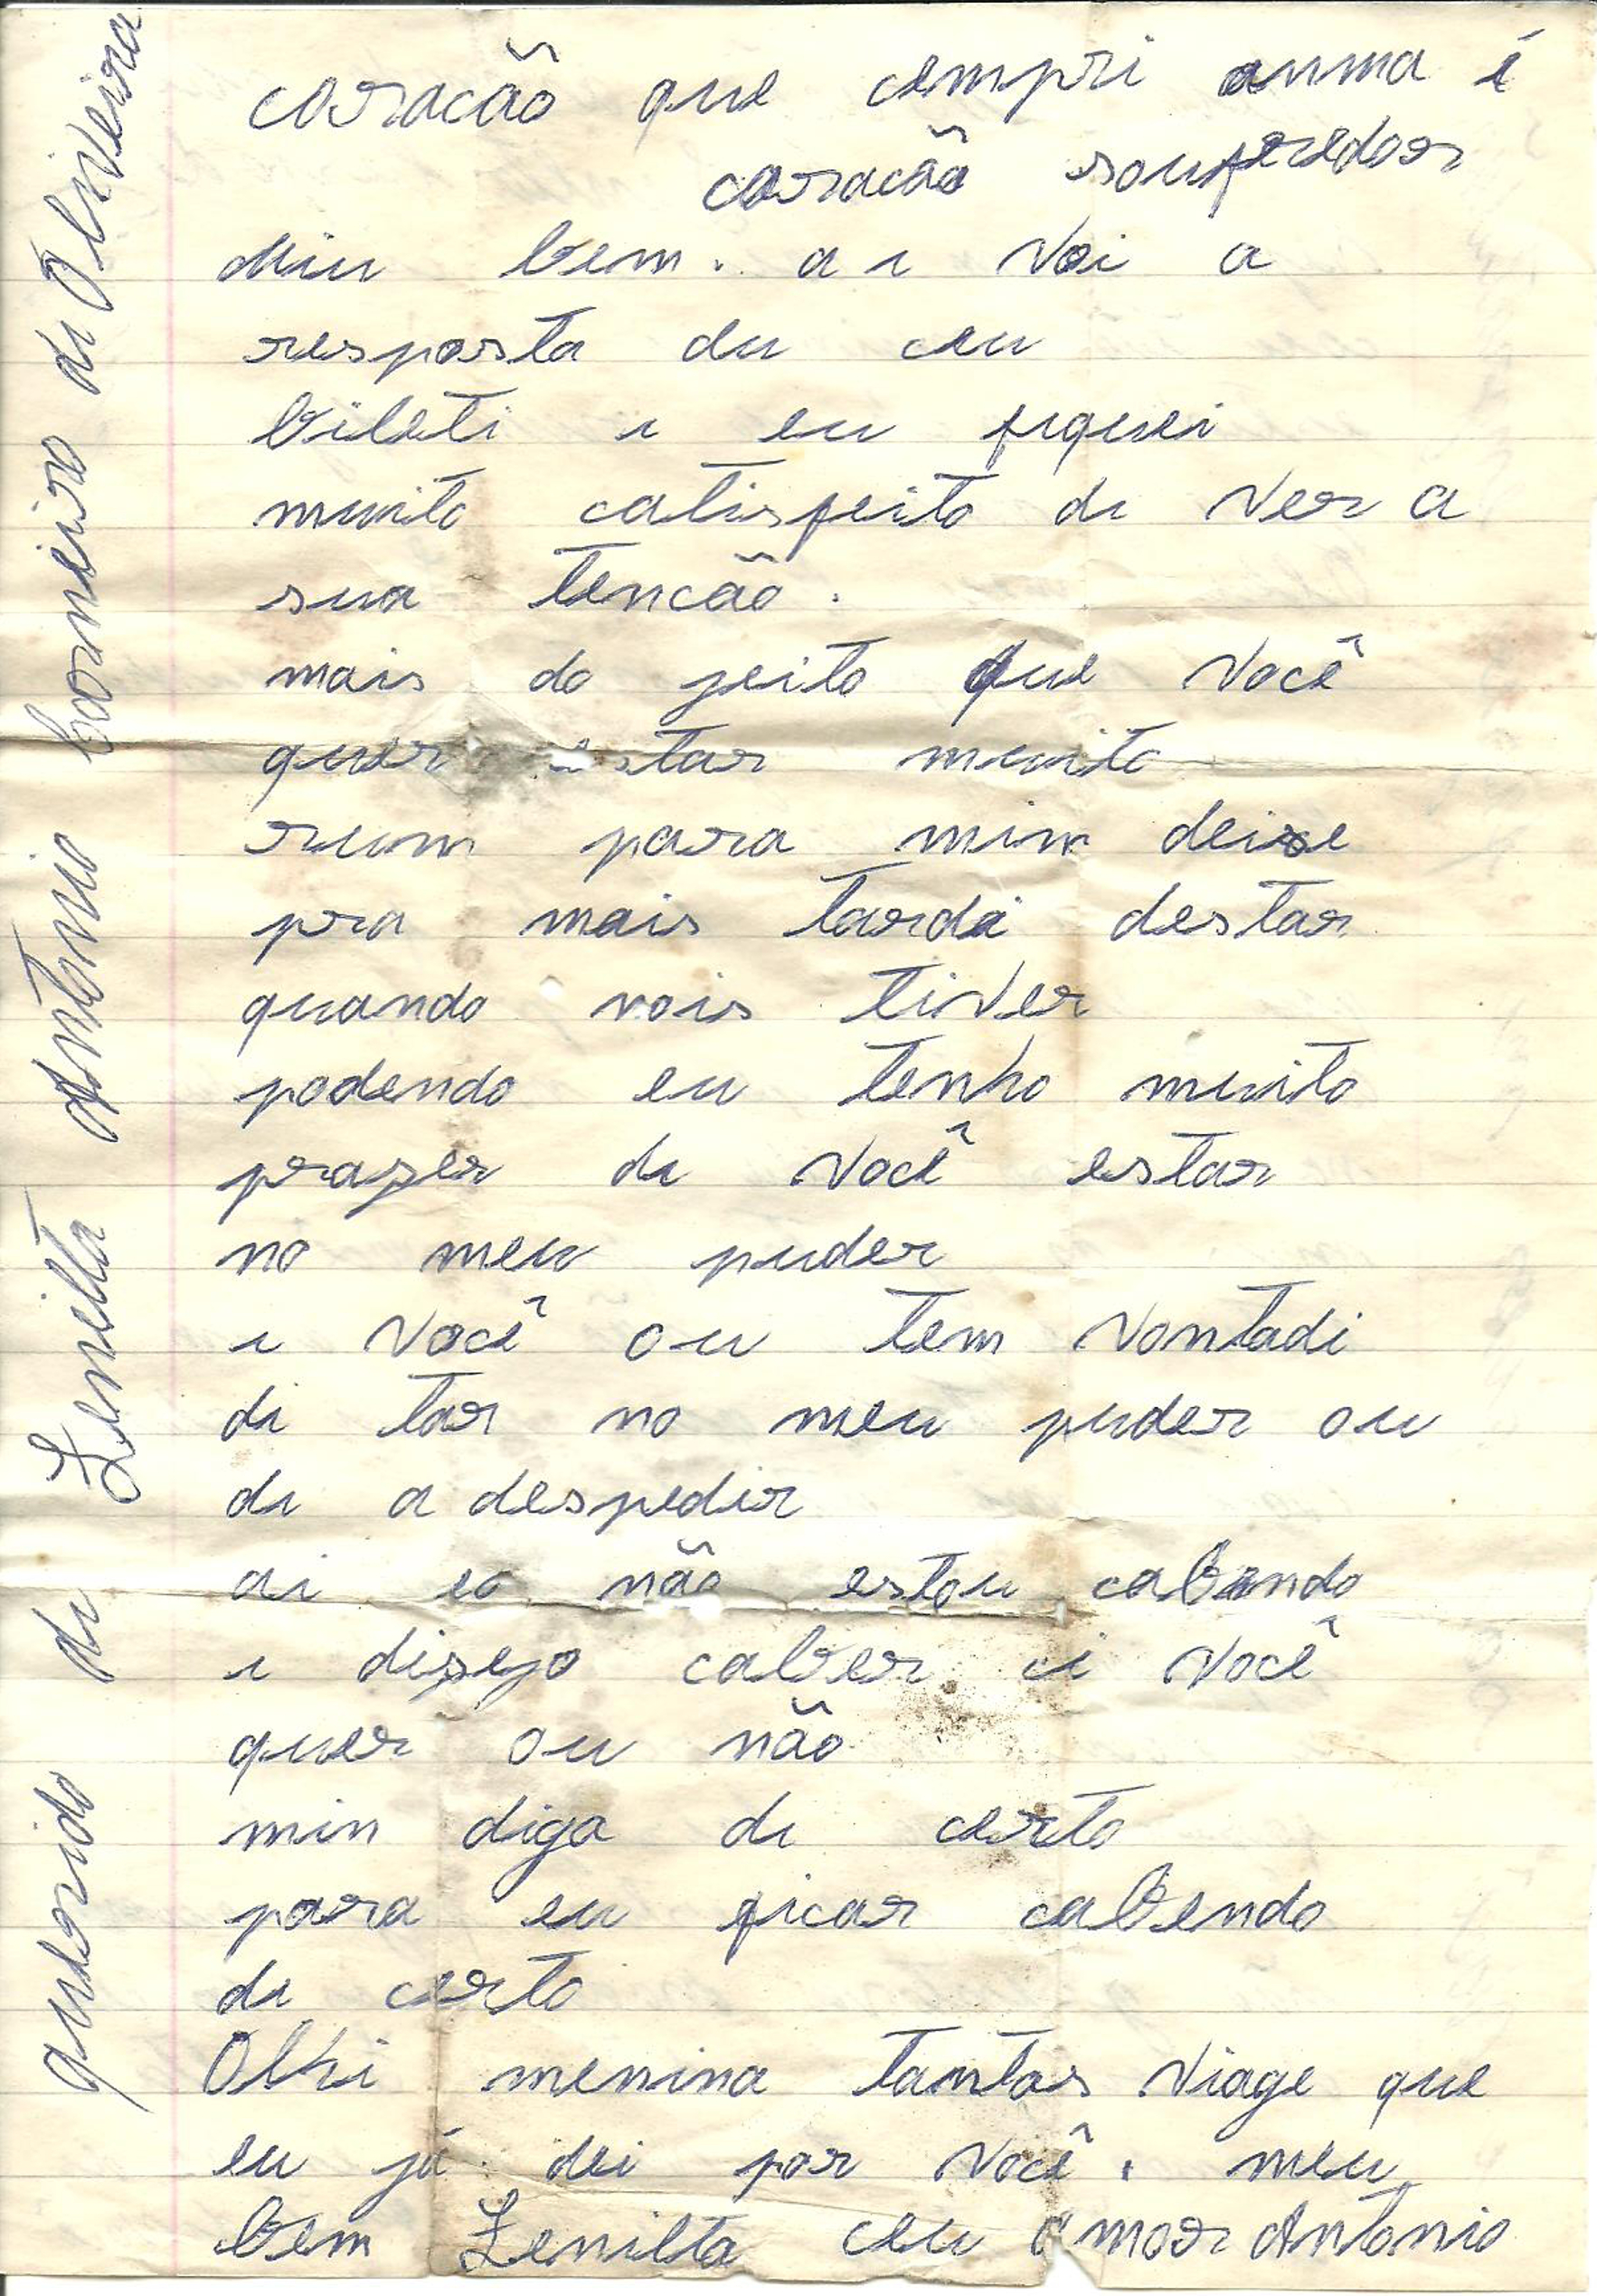 coracão que cempri anma é
coracão sonfredoor
Miu bem. a i Vai a
resposta du ceu
bileti i eu fiquei
muito catisfeito di Ver a
sua tencão.
mais do jeito que Você
quer estar muito
ruim para mim deixe
pra mais tardi destar
quando nois tiver
podendo eu tenho muito
prazer di Você estar
no meu puder
i Você ou tem Vontadi
di tar no meu puder ou
di a despedir
ai eo não estou cabendo
i disejo caber ci Você
quer ou não
min diga di certo
para eu ficar cabendo
di certo
Olhi menina tantas Viage que
eu já dei por Você. meu
bem Zenilta ceu amoor Antonio
querido di Zenilta Antonio Carneiro di Oliveira